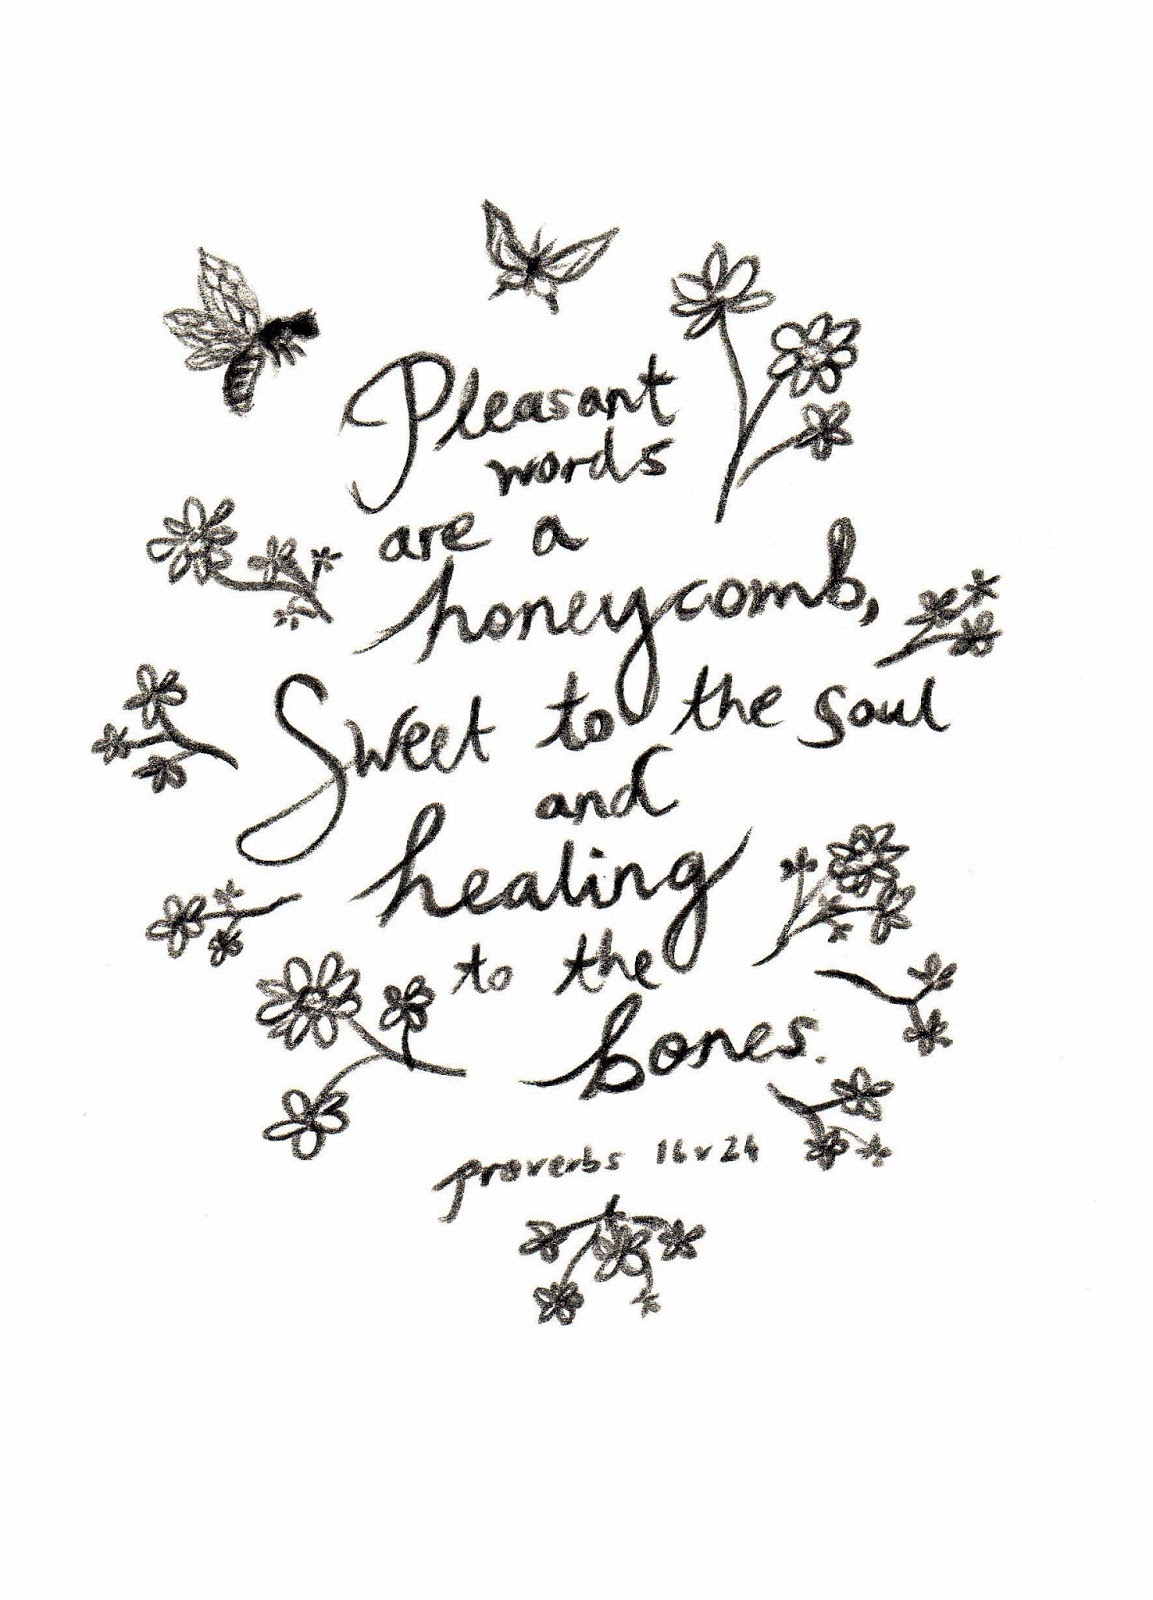 Pleasant
words
are a
honeycomb,
Sweet to the soul
and
healing
to the
bones.
proverbs 16v24